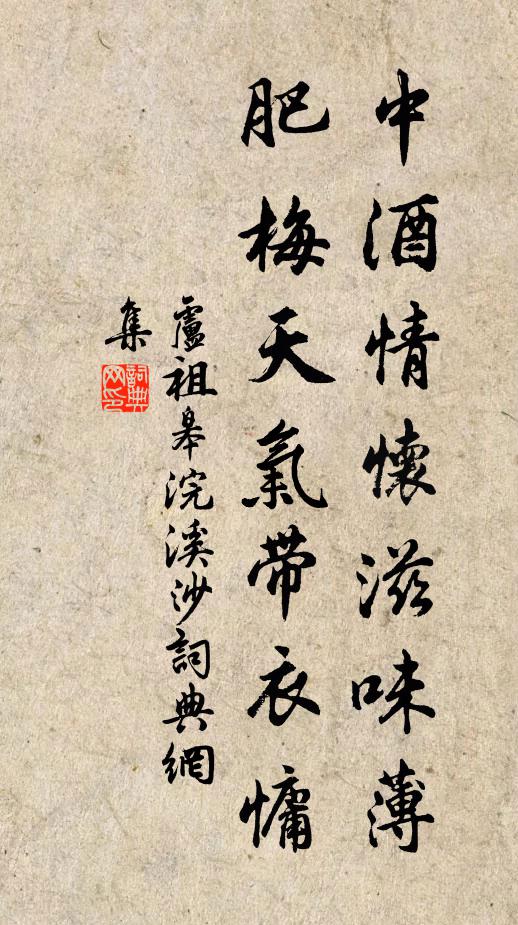 中酒情懷滋味薄
肥梅天氣帶衣慵
盧祖皋浣溪沙詞典網
集
詞典
網印